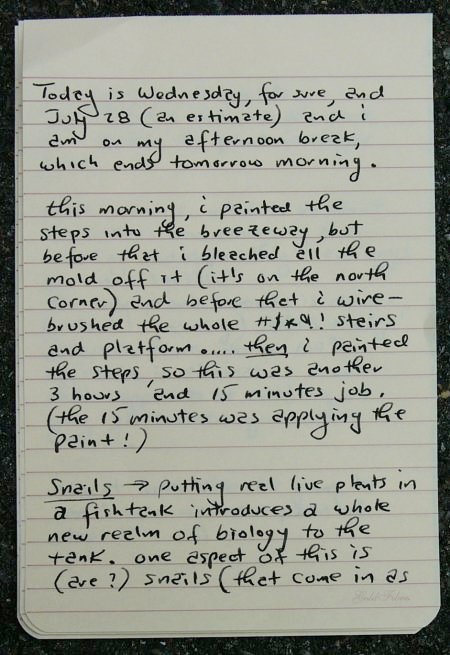 Today is Wednesday, for sure, and
July 28 (an estimate) and i
am on my afternoon break,
which ends tomorrow morning.
this morning, i painted the
steps into the breezeway, but
before that i bleached all the
mold off it (it's on the north
corner) and before that i wire-
brushed the whole #$*9! stairs
and platform..... then i painted
the steps, so this was another
3 hours and 15 minutes job.
(the 15 minutes was applying the
paint!)
Snails → putting real live plants in
a fishtank introduces a whole
new realm of biology to the
tank. one aspect of this is
(are?) snails (that come in as
Gold Fibre